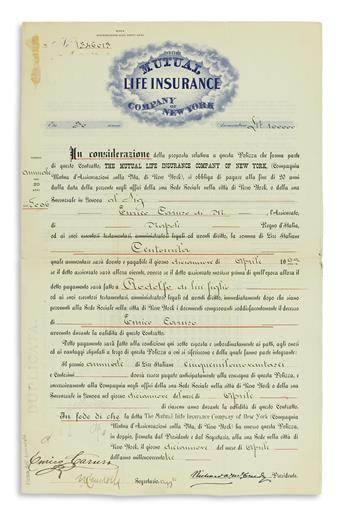 N. 1346013
THE
MUTUAL
LIFE INSURANCE
COMPANY OF
NEW YORK
Lit. 100000
In considerazione della proposta relativa a questa Polizza che forma parte
di questo Contratto, THE MUTUAL LIFE INSURANCE COMPANY OF NEW YORK, (Compagnia
Mutua d'Assicurazioni sulla Vita, di New York), si obbliga di pagare alla fine di 20 anni
dalla data della presente negli uffici della sua Sede Sociale nella città di New York o della sua
Succursale in Genova al Sig.
Enrico Caruso di M.
l'Assicurato,
di Napoli Regno d'Italia,
od ai suoi esecutori testamentari, amministratori legali od aventi diritto, la somma di Lire Italiane
Centomila
quale ammontare sarà dovuto e pagabile il giorno diciannove di Aprile 1923
se il detto assicurato sarà allora vivente, ovvero se il detto assicurato morisse prima di quell'epoca allora il
detto pagamento sarà fatto a Rodolfo di lui figlio
od ai suoi esecutori testamentari, amministratori legali od aventi diritto, immediatamente dopo che siano
pervenuti alla Sede Sociale nella città di New York i documenti comprovanti soddisfacentemente il decesso di
Enrico Caruso
avvenuto durante la validità di questo Contratto.
Detto pagamento sarà fatto alla condizione qui sotto esposta e subordinatamente ai patti, agli oneri
ed ai vantaggi stipulati a tergo di questa Polizza a cui si riferiscono e della quale fanno parte integrante:
il premio annuale di Lire Italiane
e Centesimi dovrà essere pagato anticipatamente alla consegna di questa Polizza, e
successivamente alla Compagnia negli uffici della sua Sede Sociale nella città di New York o della sua
Succursale in Genova nel giorno diciannove del mese di Aprile
di ciascun anno durante la validità di questo Contratto.
In fede di che la The Mutual Life Insurance Company of New York (Compagnia
Mutua d'Assicurazioni sulla Vita, di New York) ha emesso questa Polizza
in doppio, firmata dal Presidente e dal Segretario, alla sua Sede nella città di
New York, il giorno diciannove del mese di Aprile
dell'anno millenovecentotre
Enrico Caruso
Segretario
Richard A. McCurdy Presidente